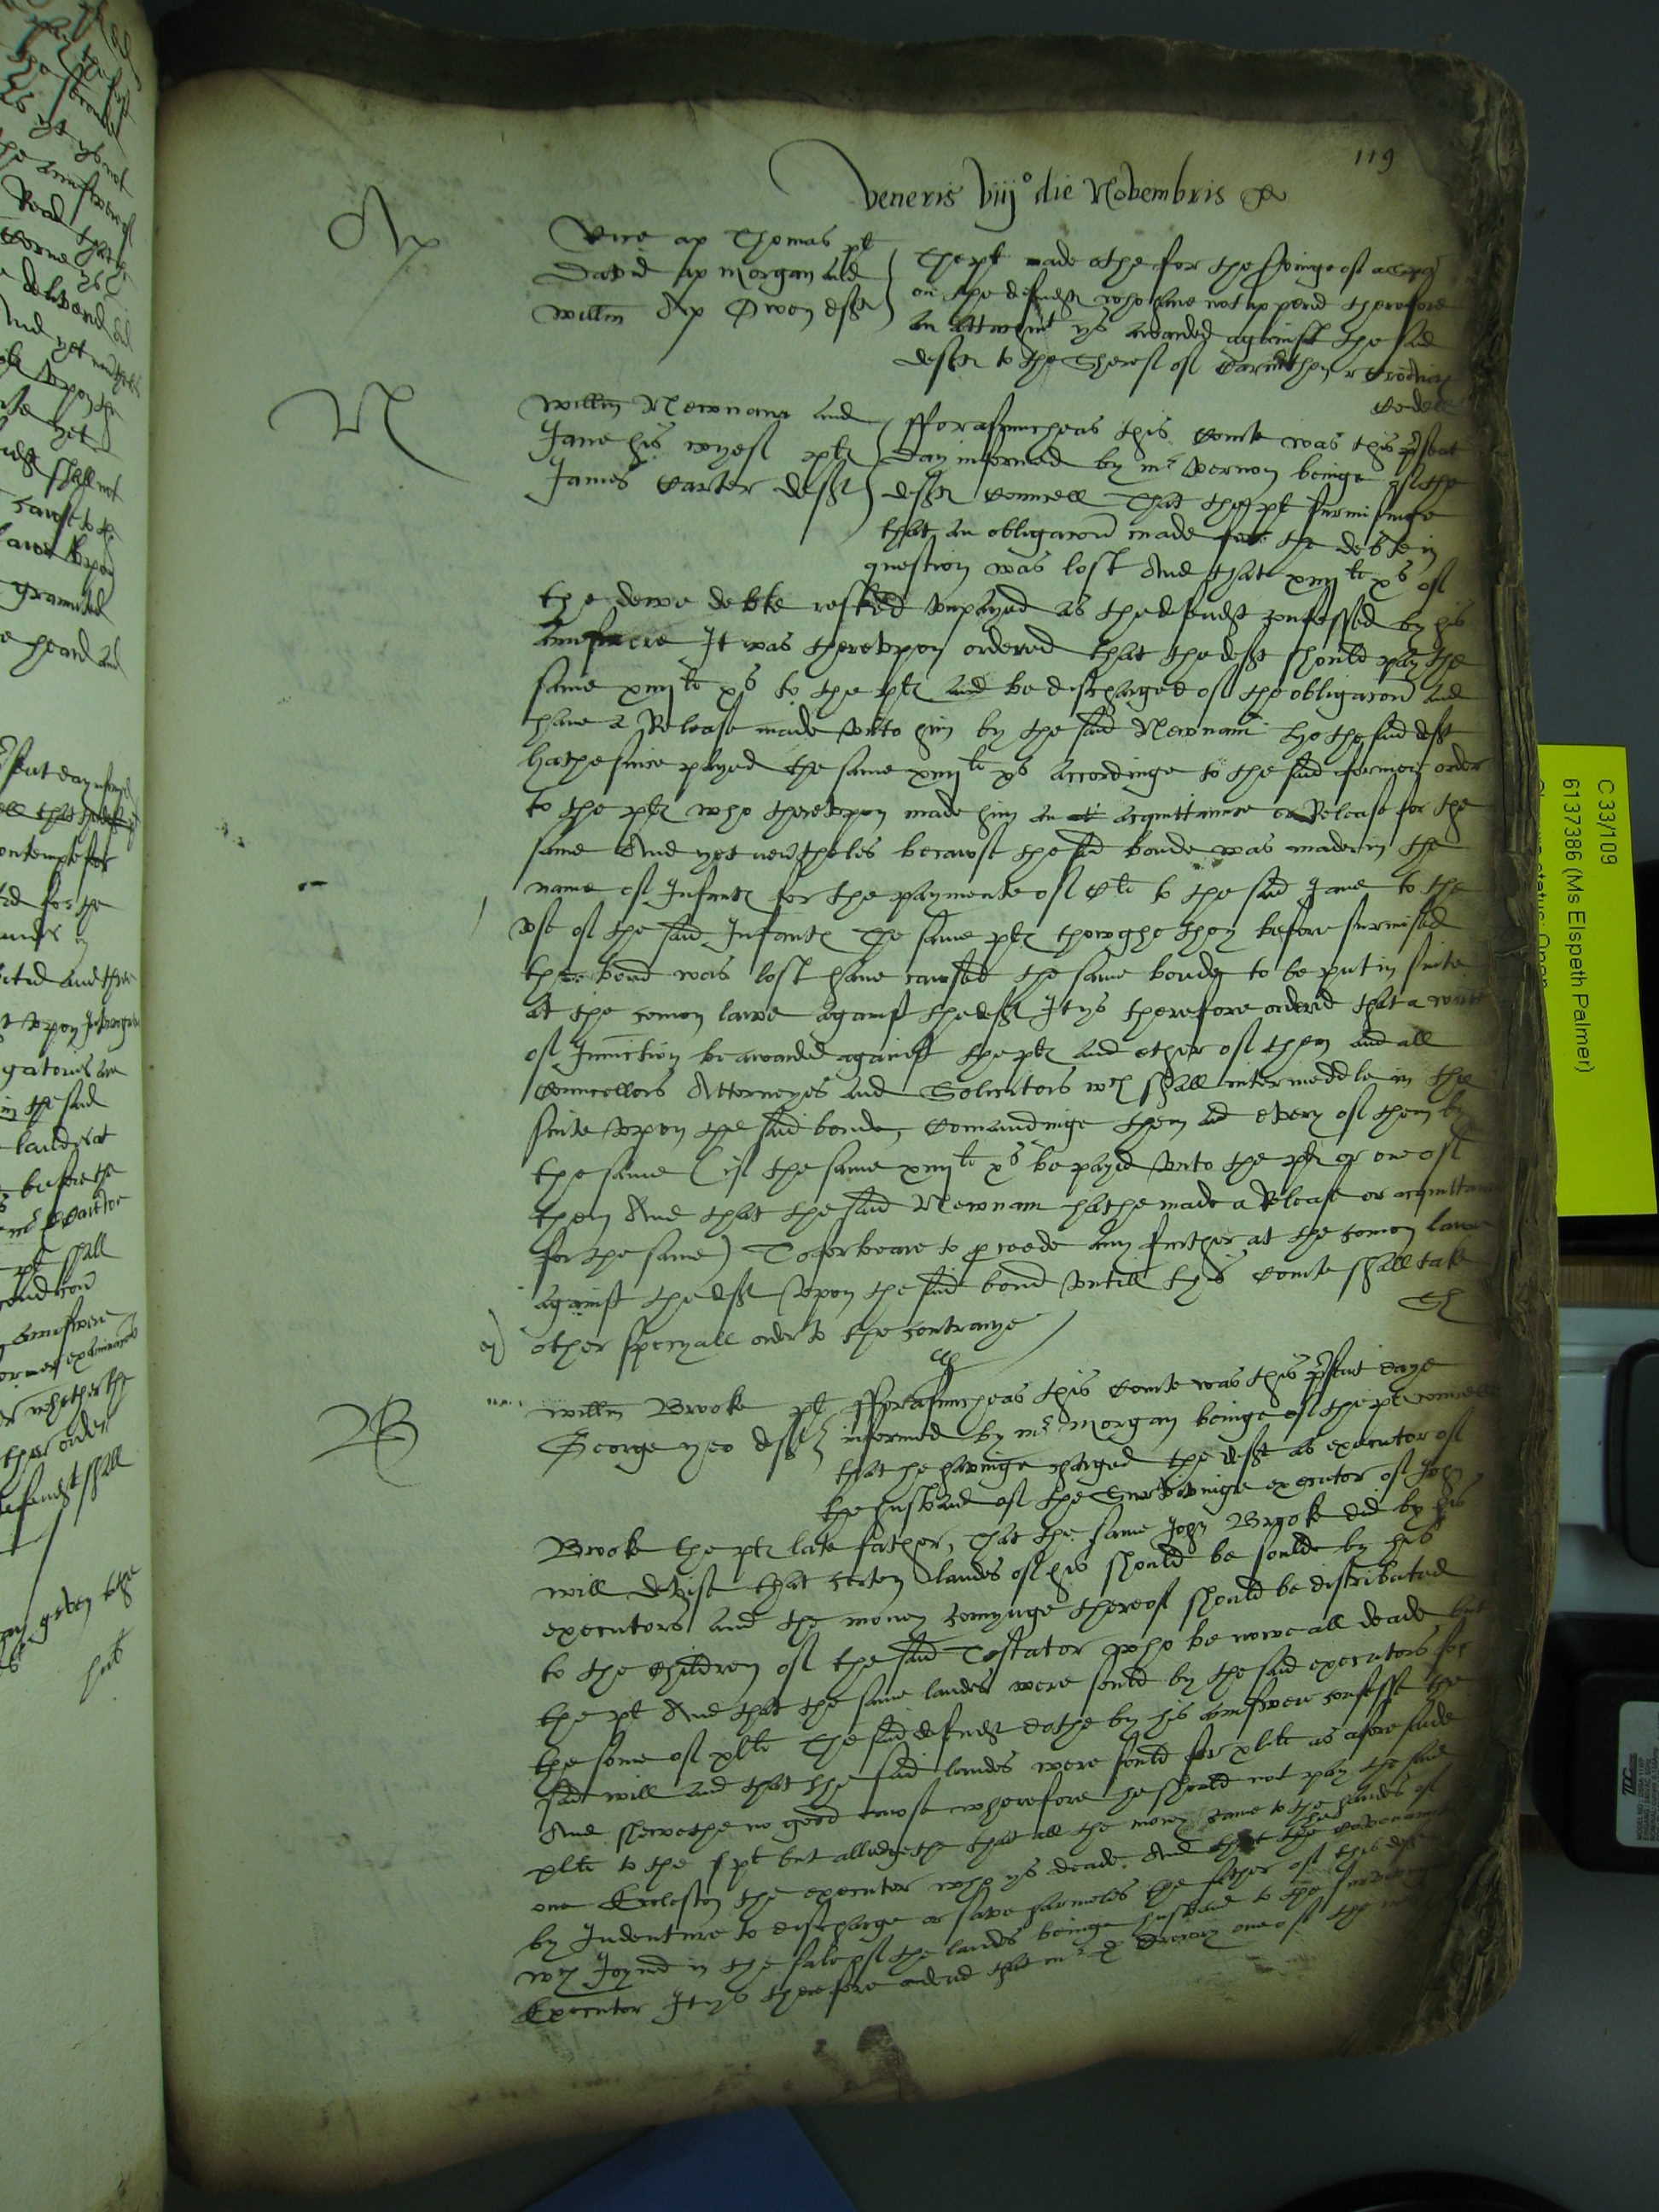 119
Veneris viij° die Novembris
Ap
Rice ap Thomas pt
David ap Morgan and
Willm Ap Owen deftes
The pt made othe for the servinge of a
on the defendtes who have not appered therefore
an attachmt ys awarded against the said
deftes to the Sheref of Carmthen r
N
Willm Newnam and
Jane his wyef ptes
James Carter deft
fforasmucheas this Courte was this prsent
Day informed by mr Vernon beinge of the
deftes Councell That the pt surmisinge
that an obligacon made for the debte in
question was lost And that xiiijli xs of
the dewe debte rested unpayed as the defendt confessed by his
answere It was thereupon ordered that the deft should pay the
same xiiijli xs to the ptes and be discharged of the obligacon and
have a Release made unto him by the said Newnam the said deft
hathe since payed the same xiiijli xs accordinge to the said former order
to the ptes who thereupon made him an acquittaunce or Release for the
same And yet nevertheles because the said bonde was made in the
name of Infantes for the paymente of Cli to the said Jane to the
use of the said Infantes The same ptes thowghe they before surmised
the bond was lost have caused the same bonde to be put in suite
at the comon lawe against the deft It ys therefore ordered that a writt
of Iniunction be awarded against the ptes and ether of them and all
Councellors Attorneyes and Solicitors wch shall intermeddle in the
suite upon the said bonde, Comaundinge them and every of them by
the same (if the same xiiijli xs be payed unto the ptes or one of
them And that the said Newnam hathe made a Release or acquittaunce
for the same) To forbeare to procede any further at the comon lawe
against the deft upon the said bond untill this Courte shall take
other specyall order to the contrarye
B
Willm Brooke pt
George yeo deft
fforasmucheas this Courte was this prsent daye
informed by mr Morgan beinge of the ptes councell
that he havinge charged the deft as executor of
the husband of the Survivinge executor of John
Brooke the ptes late father, That the same John Brooke did by his
will devise that certen landes of his should be soulde by his
executors and the money comynge thereof should be distributed
to the Children of the said Testator who be nowe all deade but
the pt And that the same landes were sould by the said executors for
the some of xlli The said defendt dothe by his answere confesse the
said will and that the said landes were sould for xlli as aforesaide
And shewethe no good cause wherefore he should not pay the said
xlli to the pt but alledgethe that all the money came to the handes of
one Eccleston the executor who ys deade. And that he
by Indenture to discharge or save harmeles the father of this deft
wch Joyned in the sale of the landes beinge husband to the
Executor It ys therefore ordered that mr D Drewry one of the
C 33/109
6137386 (Ms Elspeth Palmer)